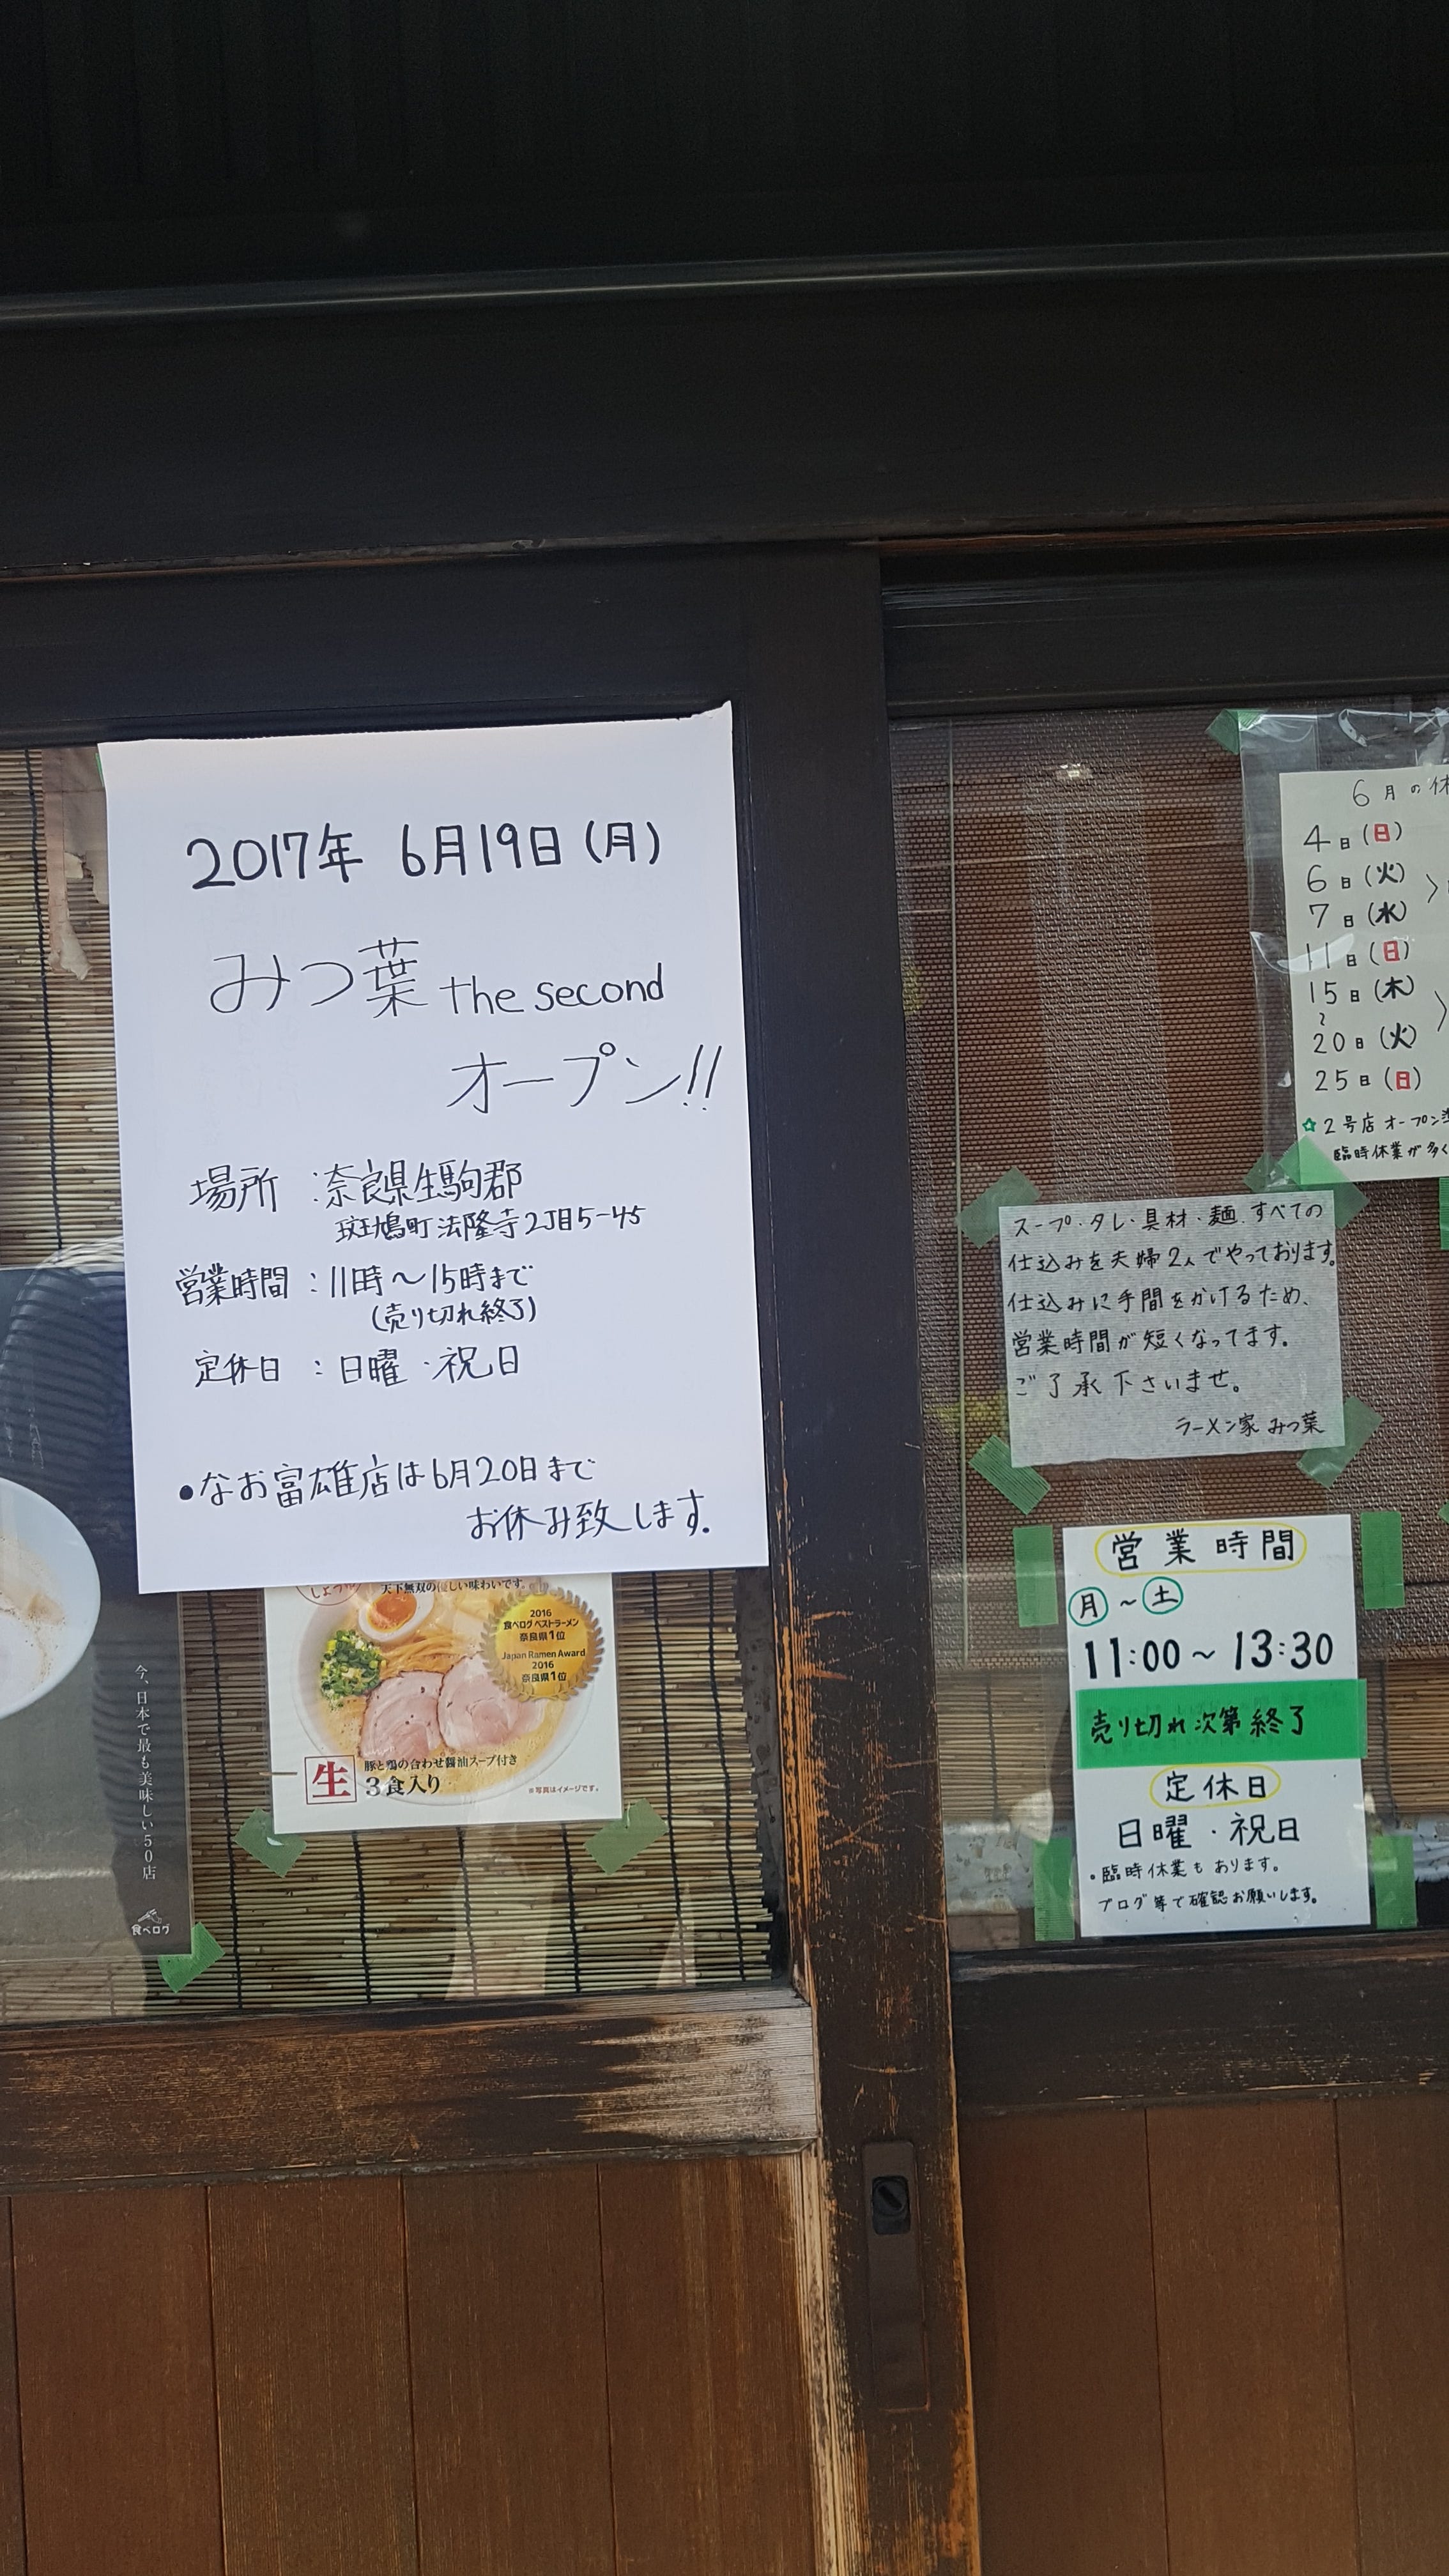 2017年 6月19日(月)
みつ葉 the second
オープン!!
場所 :奈良県生駒郡
斑鳩町法隆寺2丁目5-45
営業時間 : 11時〜15時まで
(売り切れ終了)
定休日 : 日曜・祝日
●なお富雄店は6月20日まで
お休み致します。
しょうゆ
天下無双の優しい味わいです。
2016
食べログベストラーメン
奈良県1位
Japan Ramen Award
2016
奈良県1位
生
豚と鶏の合わせ醤油スープ付き
3食入り
※写真はイメージです。
今、日本で最も美味しい50店
食べログ
6月の休
4日(日)
6日(火)
7日(水)
11日(日)
15日(木)
〜
20日(火)
25日(日)
☆2号店オープン準
臨時休業が多く
スープ・タレ・具材・麺.すべての
仕込みを夫婦2人でやっております。
仕込みに手間をかけるため、
営業時間が短くなってます。
ご了承下さいませ。
ラーメン家 みつ葉
営業時間
月〜土
11:00〜13:30
売り切れ次第終了
定休日
日曜・祝日
・臨時休業もあります。
ブログ等で確認お願いします。